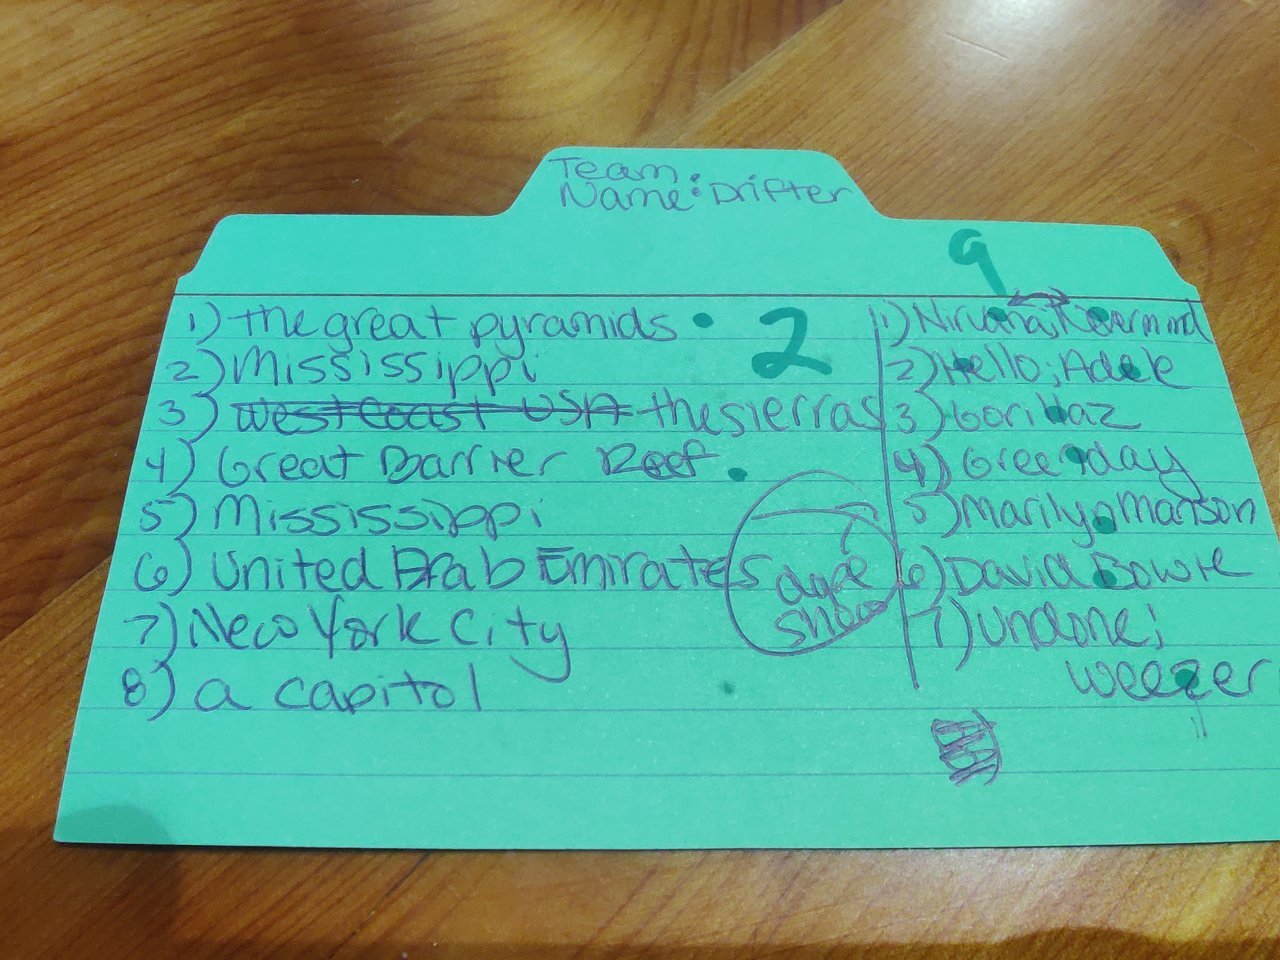 Team
Name: Drifter
9
1) the great pyramids
2
2) Mississippi
3) West Coast USA the sierras
4) Great Barrier Reef
5) Mississippi
6) United Arab Emirates
7) New York City
8) a capitol
1) Nirvana; Nevermind
2) Hello; Adele
3) Gorillaz
4) Greenday
5) Marilyn Manson
6) David Bowie
7) undone;
weezer